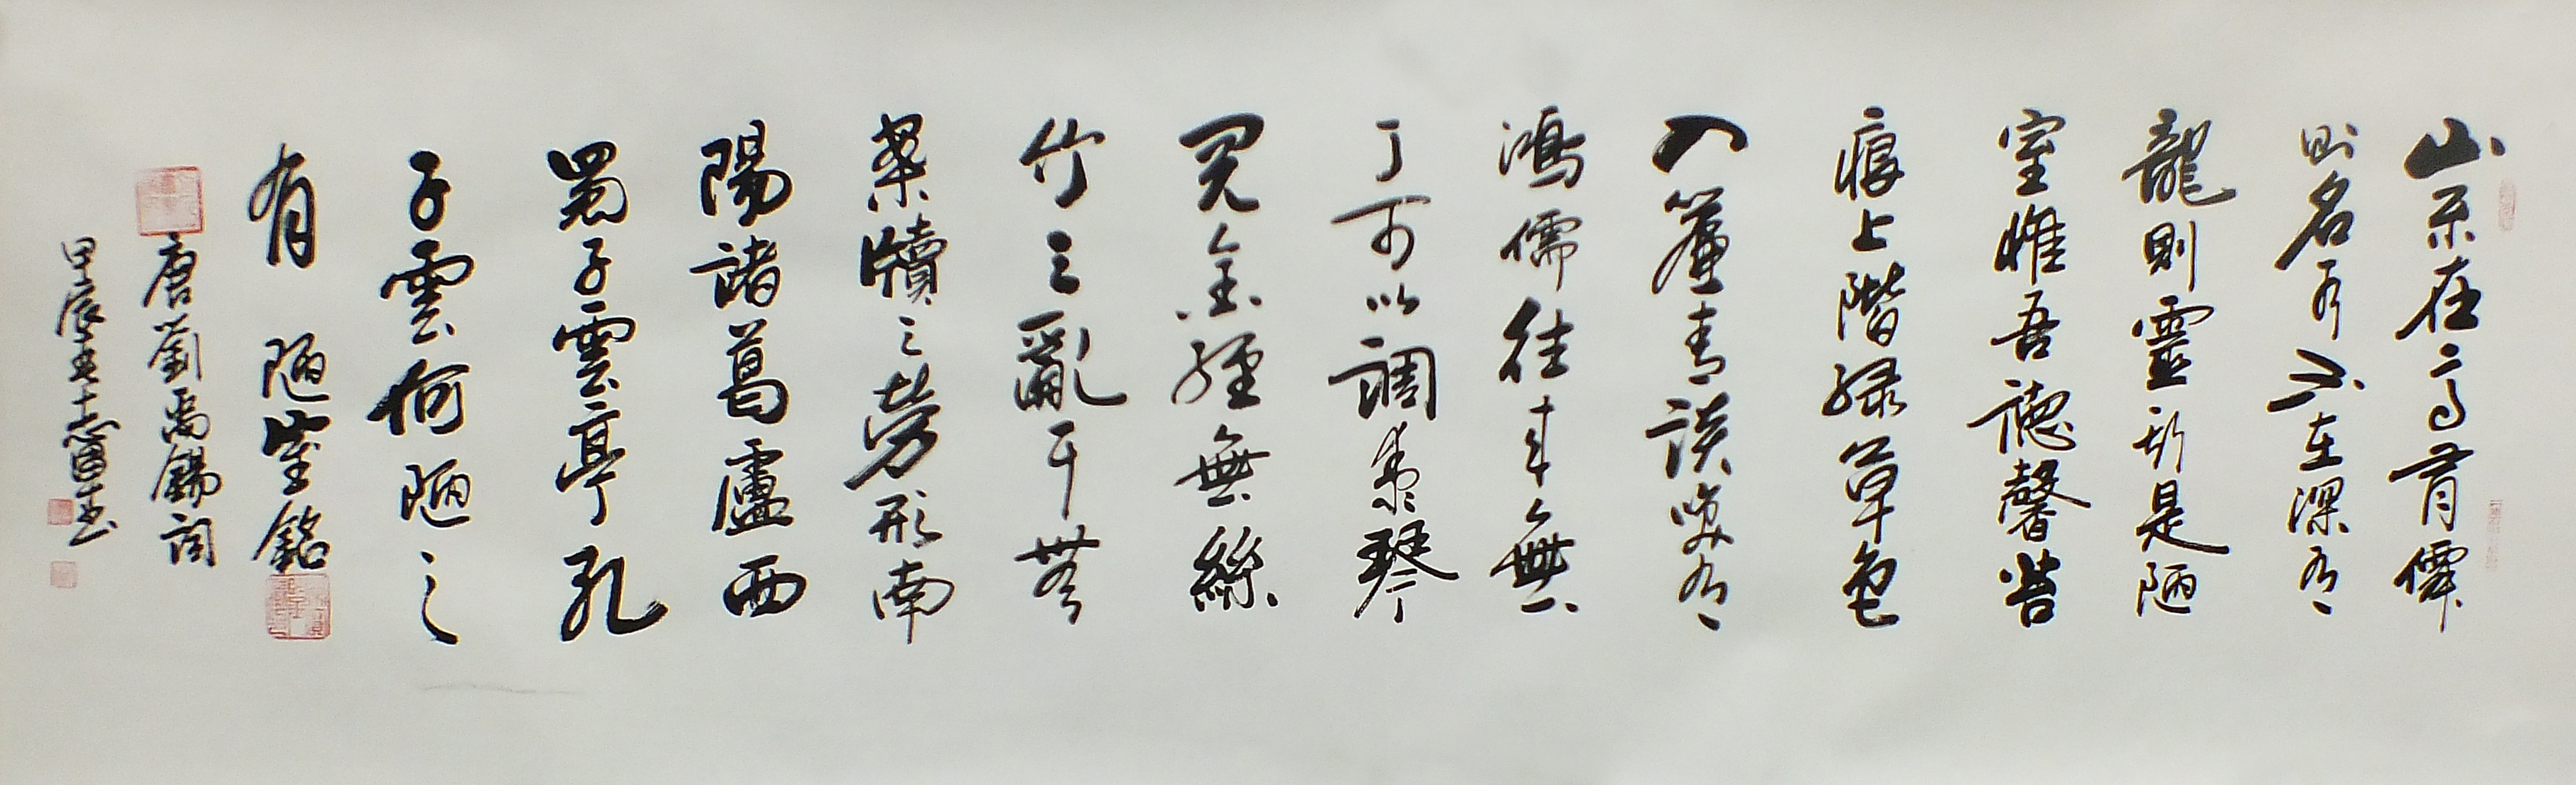 山不在高有僊
則名水不在深有
龍則靈斯是陋
室惟吾德馨苔
痕上階緑草色
入簾青談笑有
鴻儒往来無
丁可以調素琴
閲金經無絲
竹之亂耳無
案牘之勞形南
陽諸葛廬西
蜀子雲亭孔
子雲何陋之
有 陋室銘
唐劉禹錫詞
甲辰